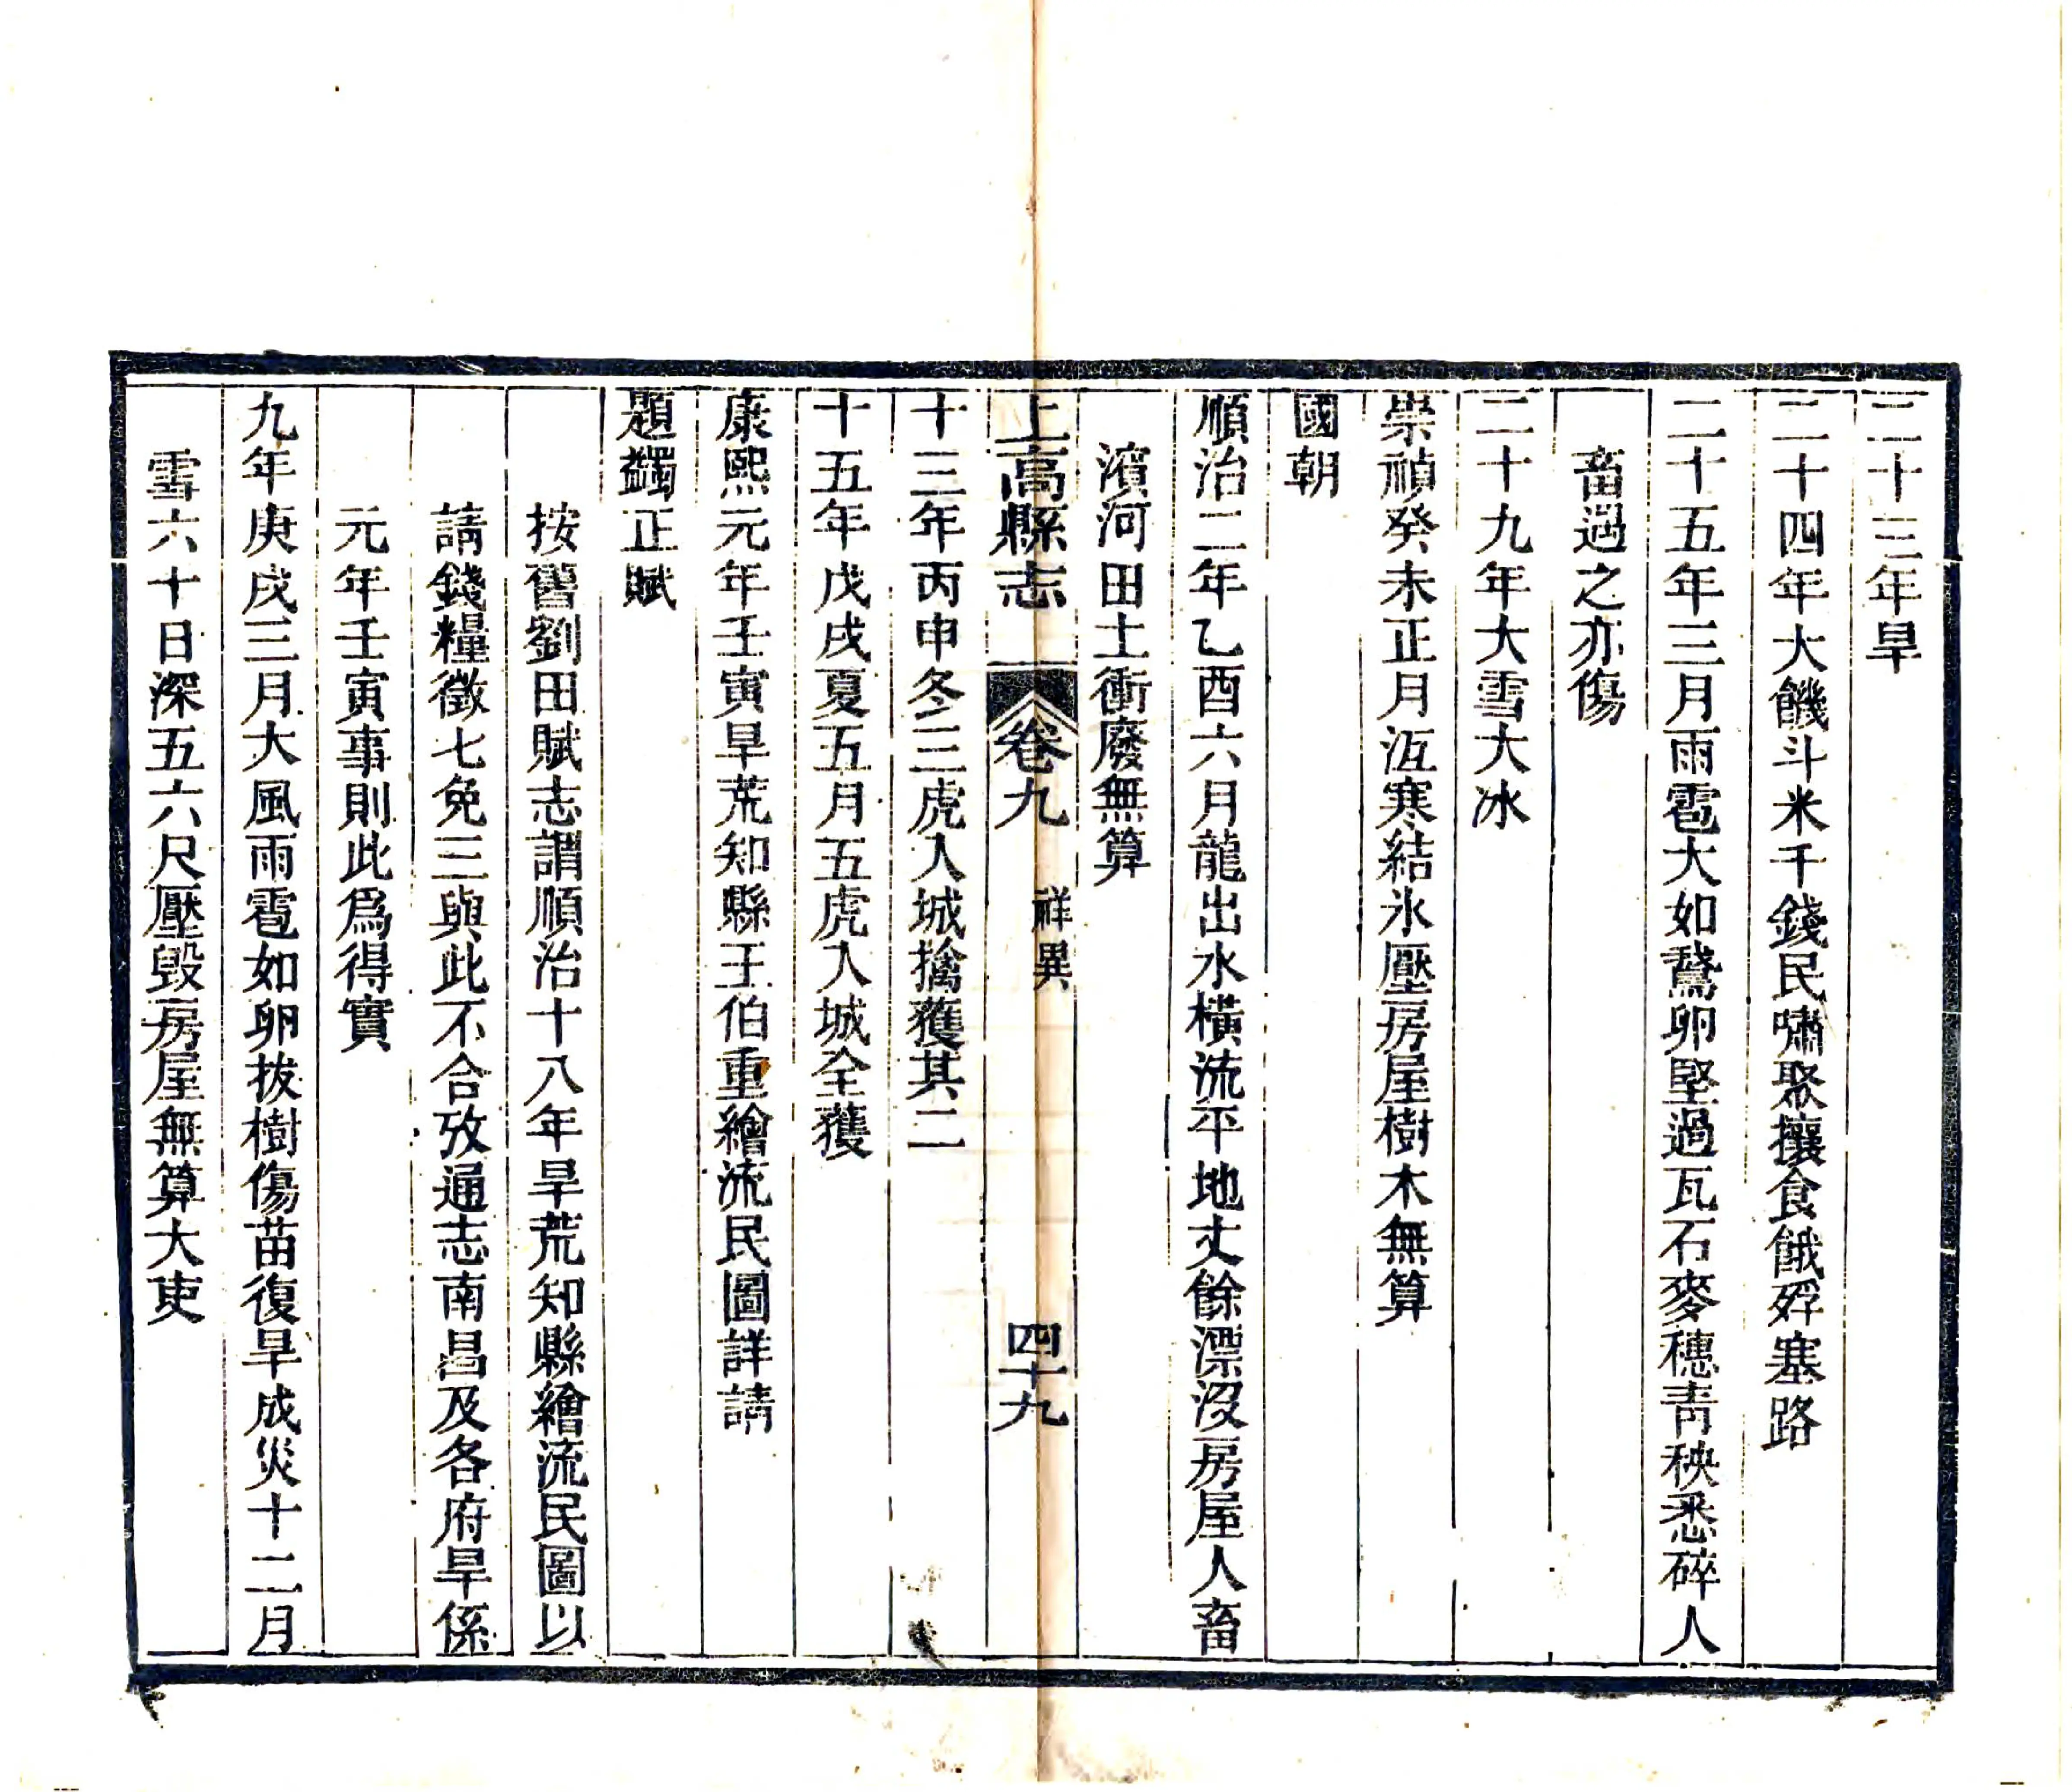 二十三年旱
二十四年大饑斗米千錢民嘯聚攘食餓殍塞路
二十五年三月雨雹大如鵞卵堅過瓦石麥穗靑秧悉碎人
畜遇之亦傷
二十九年大雪大冰
崇禎癸未正月沍寒結氷壓房屋樹木無算
國朝
順治二年乙酉六月龍出水橫流平地丈餘漂沒房屋人畜
濱河田土衝廢無算
上高縣志 卷九 祥異 四十九
十三年丙申冬三虎入城擒獲其二
十五年戊戌夏五月五虎入城全獲
康熙元年壬寅旱荒知縣王伯重繪流民圖詳請
題蠲正賦
按舊劉田賦志謂順治十八年旱荒知縣繪流民圖以
請錢糧徵七免三與此不合攷通志南昌及各府旱係
元年壬寅事則此爲得實
九年庚戌三月大風雨雹如卵拔樹傷苗復旱成災十二月
雪六十日深五六尺壓毀房屋無算大吏